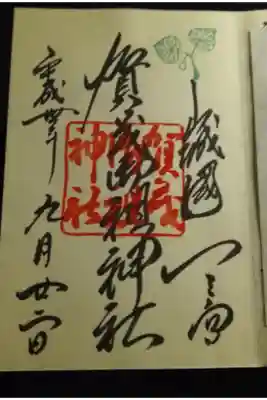 山城國一之宮
賀茂御祖神社
平成卅年九月廿日
賀茂
御祖
神社